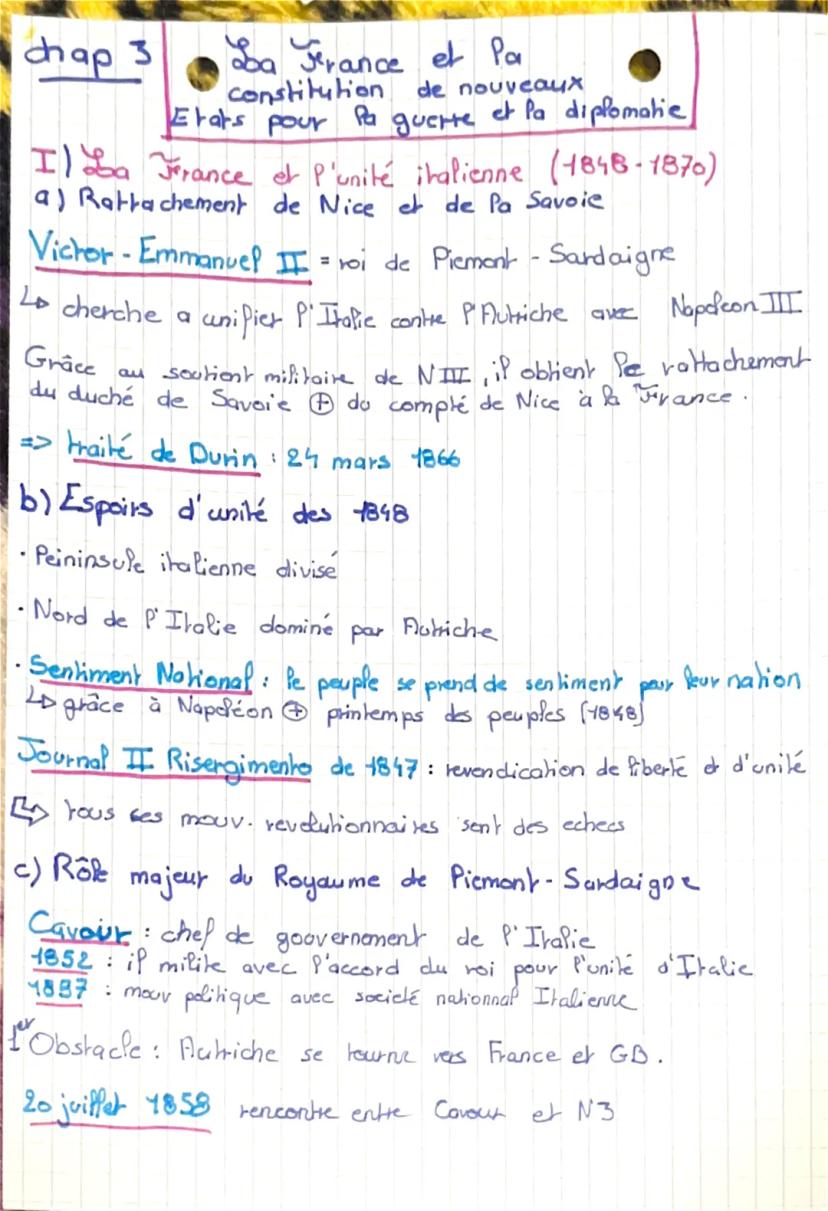 chap 3
La France et la
constitution de nouveaux
Etats pour la guerre et la diplomatie
I) La France et l'unité italienne (1848-1870)
a) Rattachement de Nice et de la Savoie
Victor-Emmanuel II = roi de Piemont-Sardaigne
↳ cherche a unifier l'Italie contre l'Autriche avec Napoleon III
Grâce au soutient militaire de NIII, il obtient le rattachement
du duché de Savoie ⊕ du compté de Nice à la France.
=> traité de Durin : 24 mars 1866
b) Espoirs d'unité des 1848
· Peininsule italienne divisé
· Nord de l'Italie dominé par Autriche
· Sentiment National : le peuple se prend de sentiment pour leur nation
↳ grâce à Napoléon ⊕ printemps des peuples (1848)
Journal II Risergimento de 1847 : revendication de liberté et d'unité
↳ tous ses mouv. revolutionnaires sont des echecs
c) Rôle majeur du Royaume de Piemont-Sardaigne
Cavour : chef de goovernoment de l'Italie
1852 : il milite avec l'accord du roi pour l'unité d'Italie
1897 : mouv politique avec societé nationnal Italienne
1er Obstacle : Autriche se tourne vers France et GB.
20 juillet 1858 rencontre entre Cavour et N3